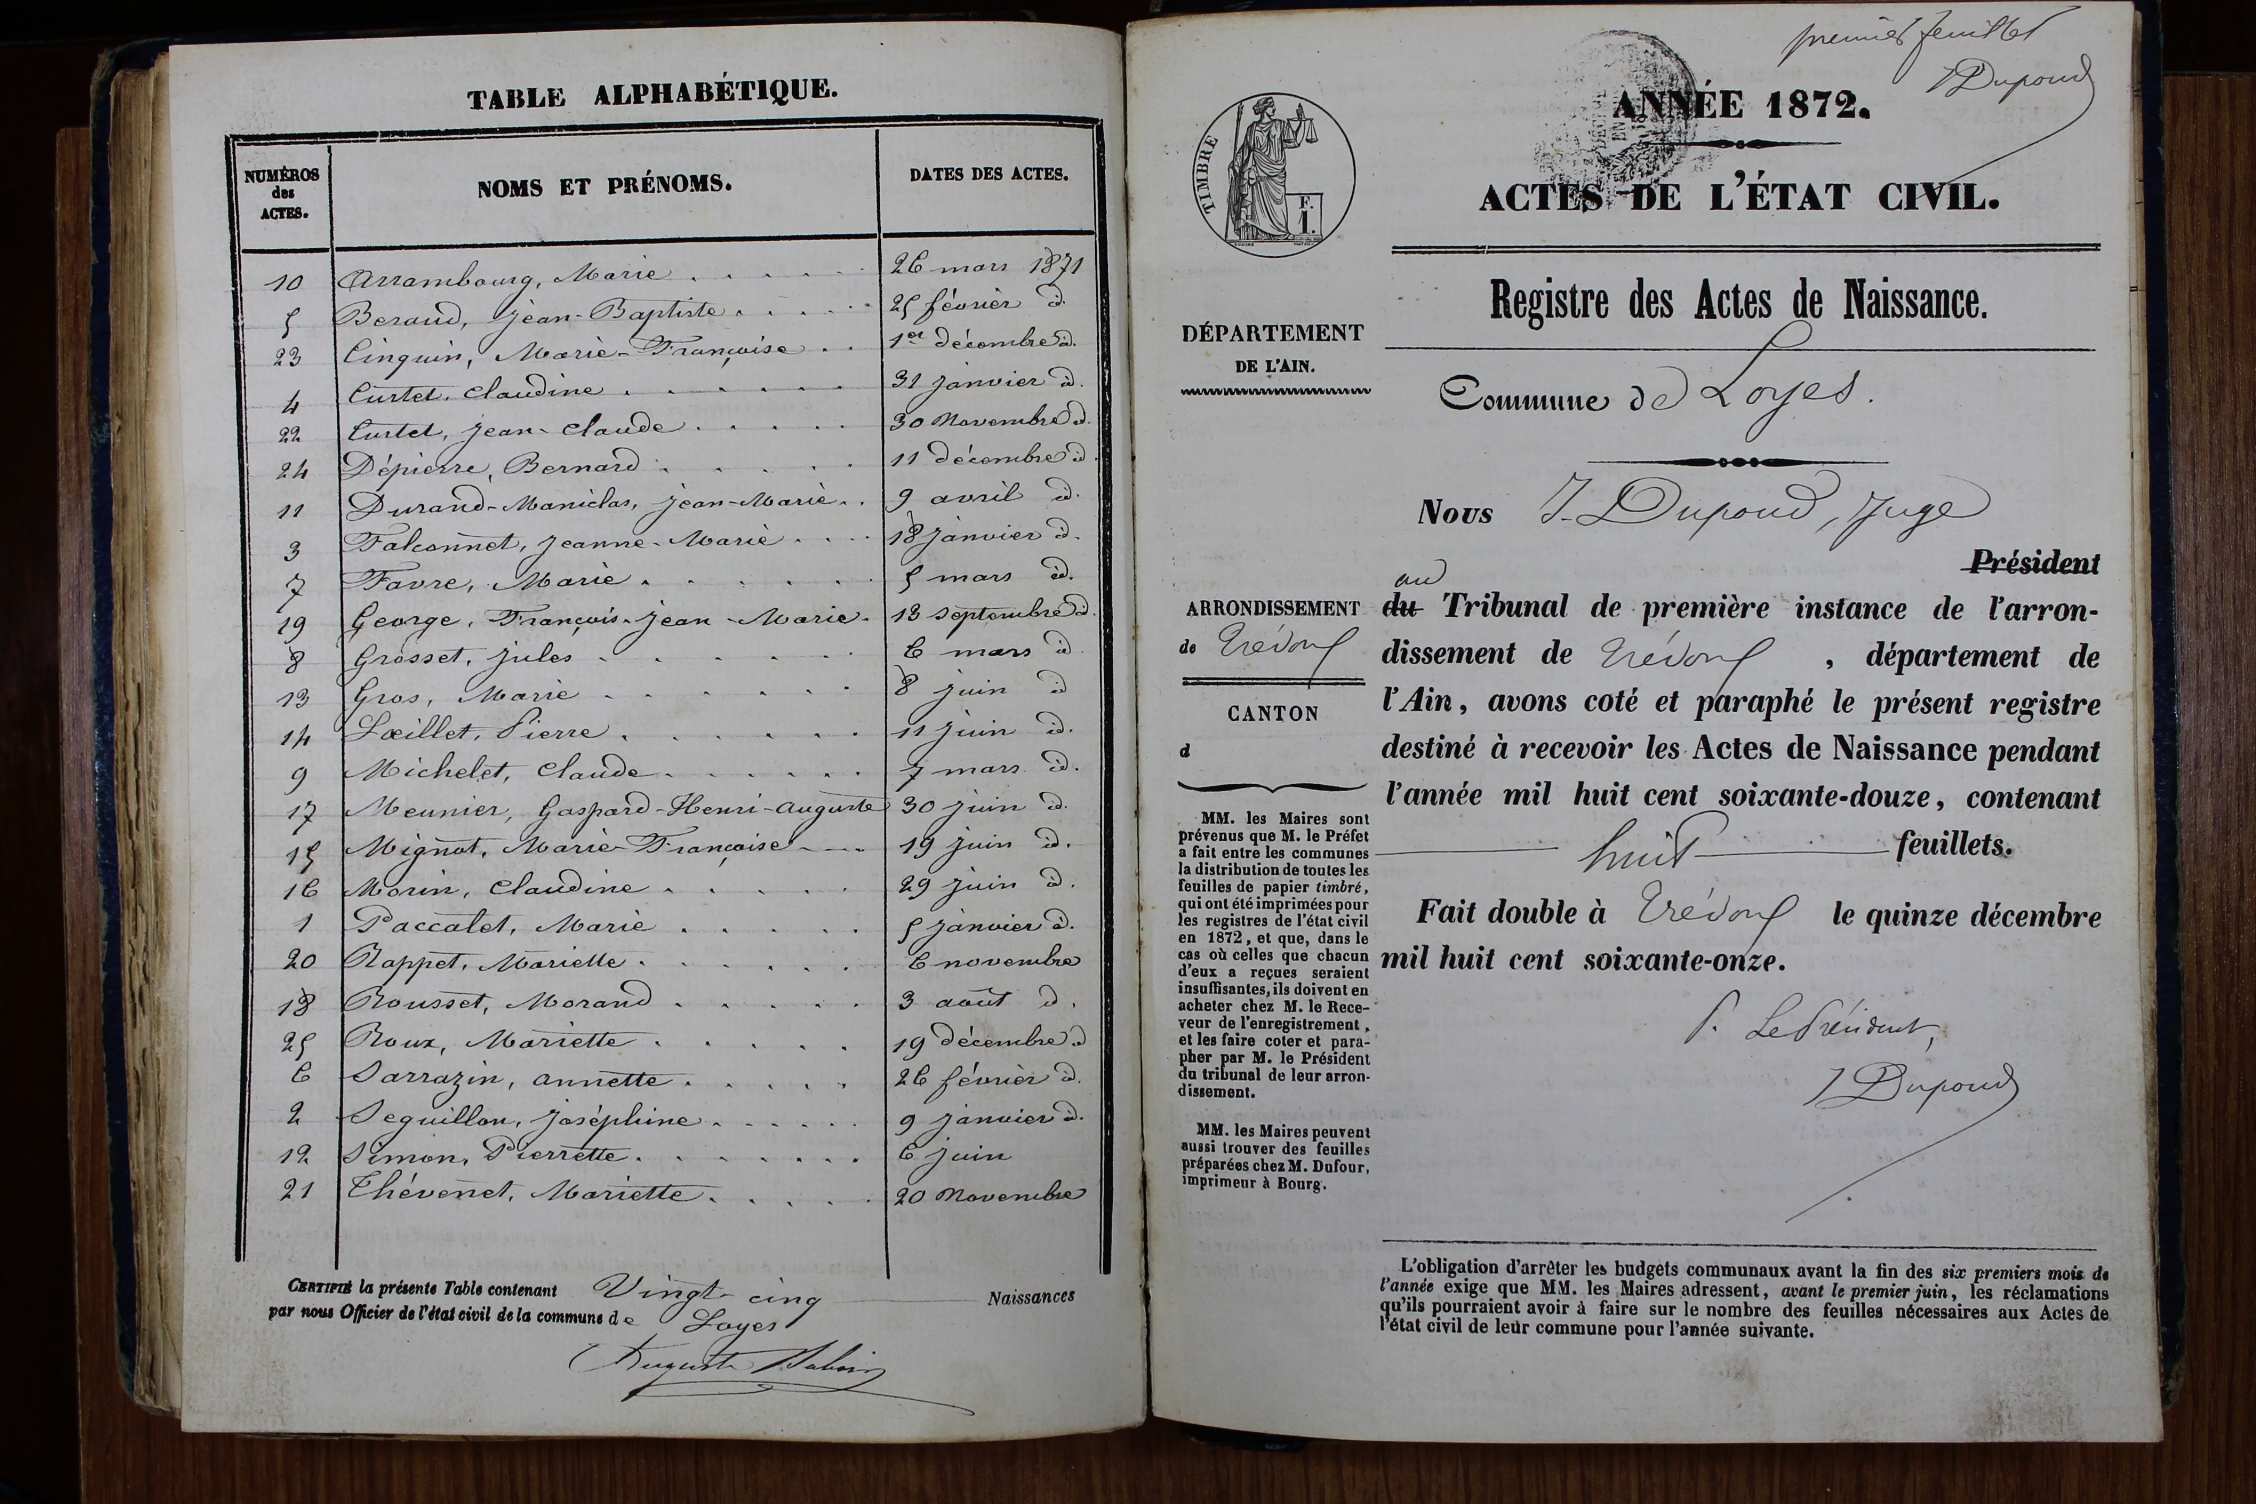 TABLE ALPHABÉTIQUE.
NUMÉROS
des
ACTES.
NOMS ET PRÉNOMS.
DATES DES ACTES.
10 Arrambourg, Marie . . . . . 26 mars 1871
5 Beraud, Jean-Baptiste . . . . . 25 février id.
23 Cinquin, Marie-Françoise . . 1er décembre id.
4 Curtet, Claudine . . . . . . 31 janvier id.
22 Curtet, Jean-Claude . . . . . 30 Novembre id.
24 Dépierre, Bernard . . . . . 11 décembre id.
11 Durand-Maniclas, Jean-Marie . . 9 avril id.
3 Falconnet, Jeanne-Marie . . . . 18 janvier id.
7 Favre, Marie . . . . . . 5 mars id.
19 George, François-Jean-Marie . 13 Septembre id.
8 Grosset, Jules . . . . . . 6 mars id
13 Gros, Marie . . . . . . 8 juin id
14 Lœillet, Pierre . . . . . . 11 juin id.
9 Michelet, Claude . . . . . . 7 mars id.
17 Meunier, Gaspard-Henri-Auguste 30 juin id.
15 Mignot, Marie-Françoise . . . 19 juin id.
16 Morin, Claudine . . . . . 29 juin id.
1 Paccalet, Marie . . . . . 5 janvier id.
20 Rappet, Mariette . . . . . . 6 novembre
18 Rousset, Morand . . . . . 3 août id.
25 Roux, Mariette . . . . . 19 décembre id
6 Sarrazin, Annette . . . . . 26 février id.
2 Seguillon, Joséphine . . . . . . 9 janvier id.
12 Simon, Pierrette . . . . . . . 6 juin
21 Thévenet, Mariette . . . . . 20 Novembre
CERTIFIÉ la présente Table contenant Vingt-cinq Naissances
par nous Officier de l'état civil de la commune de Loyes
Auguste
premier feuillet
J Dupond
ANNÉE 1872.
ACTES DE L'ÉTAT CIVIL.
TIMBRE
F.
1.
Registre des Actes de Naissance.
DÉPARTEMENT
DE L'AIN.
Commune de Loyes.
Nous J. Dupond, Juge
Président
au
du Tribunal de première instance de l'arron-
dissement de Trévoux, département de
l'Ain, avons coté et paraphé le présent registre
destiné à recevoir les Actes de Naissance pendant
l'année mil huit cent soixante-douze, contenant
huit feuillets.
Fait double à Trévoux le quinze décembre
mil huit cent soixante-onze.
P. Le Président,
J Dupond
ARRONDISSEMENT
de Trévoux
CANTON
d
MM. les Maires sont
prévenus que M. le Préfet
a fait entre les communes
la distribution de toutes les
feuilles de papier timbré,
qui ont été imprimées pour
les registres de l'état civil
en 1872, et que, dans le
cas où celles que chacun
d'eux a reçues seraient
insuffisantes, ils doivent en
acheter chez M. le Rece-
veur de l'enregistrement,
et les faire coter et para-
pher par M. le Président
du tribunal de leur arron-
dissement.
MM. les Maires peuvent
aussi trouver des feuilles
préparées chez M. Dufour,
imprimeur à Bourg.
L'obligation d'arrêter les budgets communaux avant la fin des six premiers mois de
l'année exige que MM. les Maires adressent, avant le premier juin, les réclamations
qu'ils pourraient avoir à faire sur le nombre des feuilles nécessaires aux Actes de
l'état civil de leur commune pour l'année suivante.